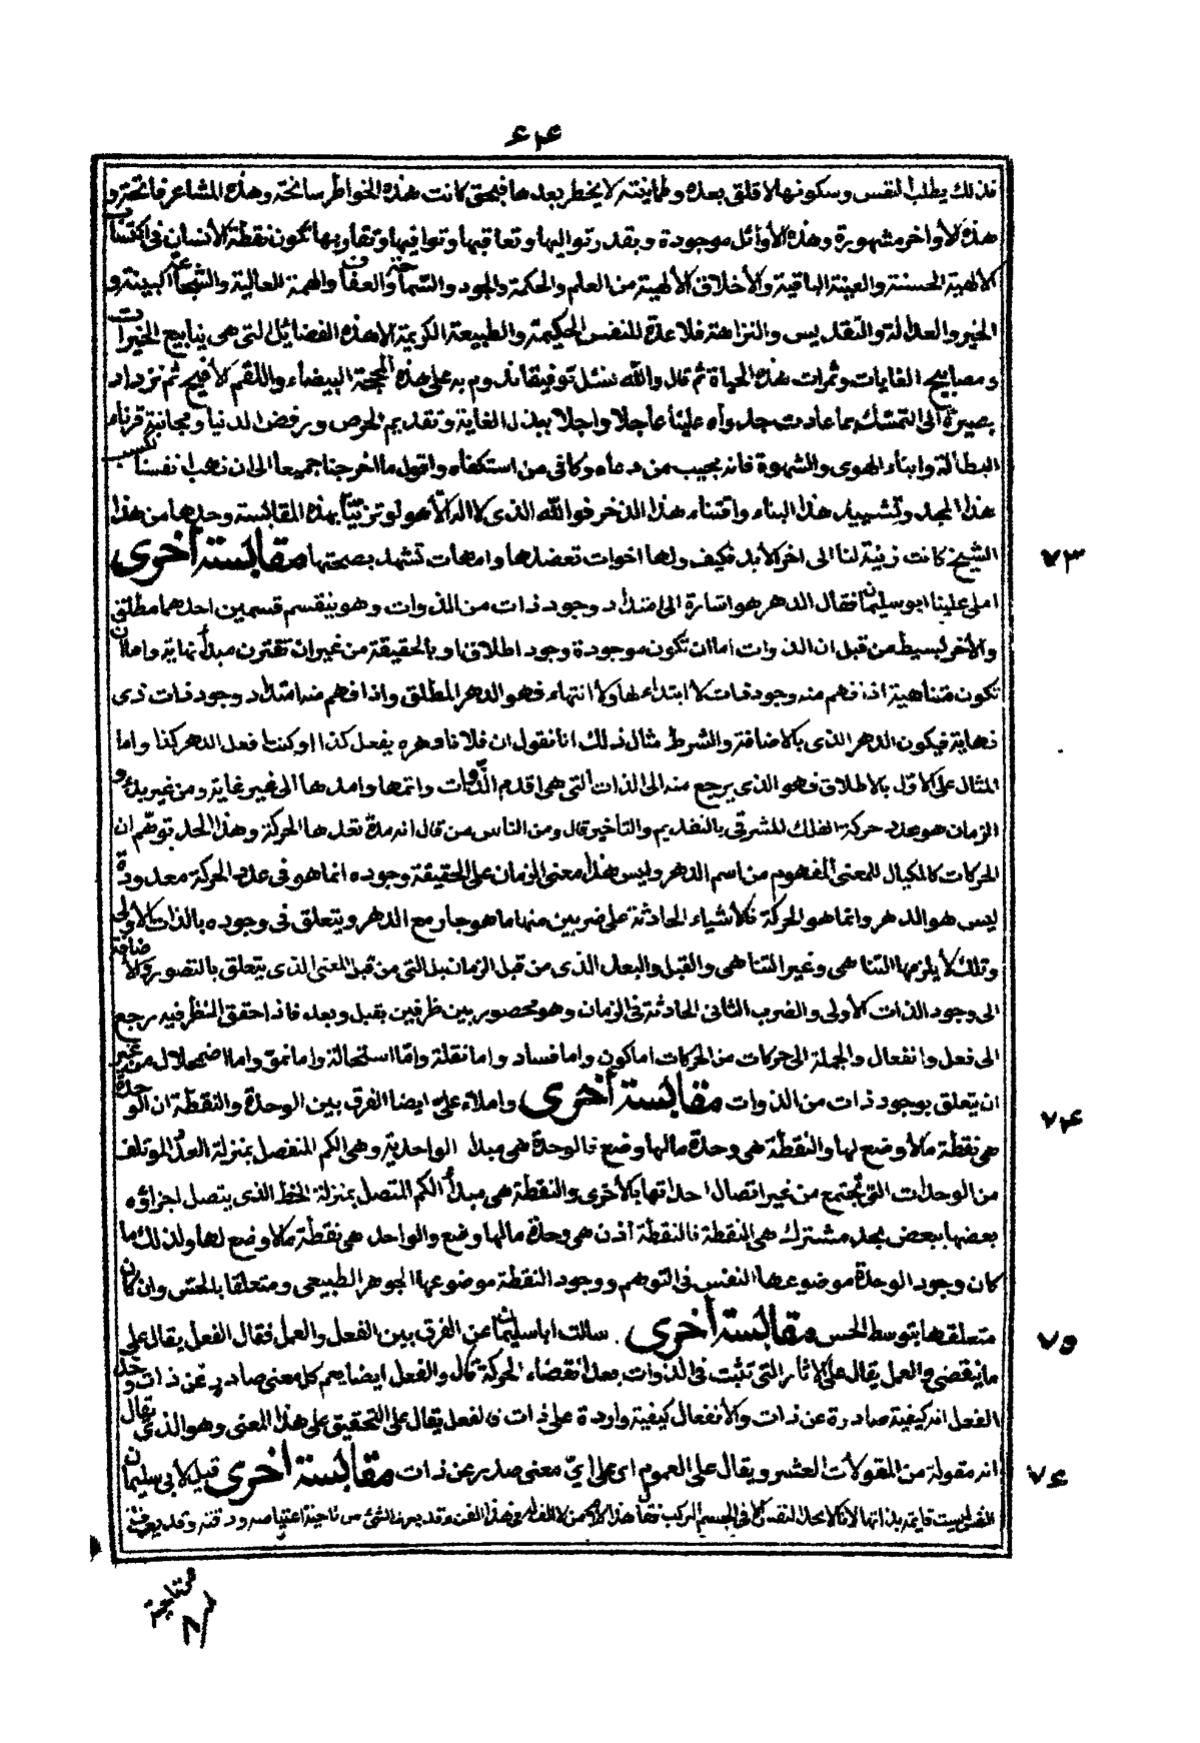 ۶۴
فذلك يطلب النفس وسكونها لا قلق بعده وطمانينة لا يخطر بعدها فبحق كانت هذه الخواطر سانحة وهذه المشاعر فاتحة و
هذه الاواخر مشهورة وهذه الأوائل موجودة وبقدر تواليها وتعاقبها وتوافيها وتقاربها تكون نقطة الأنسان في اكتساب
الألهية الحسنة والعينة الباقية والأخلاق الألهية من العلم والحكمة والجود والسماحة والعفاف والهمة العالية والشجاعة البينة و
الخير والعدالة والتقديس والنزاهة فلا عدة للنفس الحكيمة والطبيعة الكريمة الا هذه الفضائل التي هي ينابيع الخيرات
ومصابيح الغايات وثمرات هذه الحياة ثم قال والله نسئل توفيقا ندوم به على هذه المحجة البيضاء واللقم الأفيح ثم نزداد
بصيرة الى التمسك بما عادت جدواه علينا عاجلا واجلا ببذل الغاية وتقديم الحرص ورفض الدنيا ومجانبة قرناء
البطالة وابناء الهوى والشهوة فانه مجيب من دعاه وكافي من استكفاه واقول ما اخرجنا جميعا الى ان نهب انفسنا لكسب
هذا المجد وتشييد هذا البناء واقتناء هذا الذخر فوالله الذي لا اله الا هو لو تزيّنّا بهذه المقابسة وحدها من هذا
الشيخ كانت زينة لنا الى اخر الأبد فكيف ولها اخوات تعضدها وامهات تشهد بصحتها مقابسة أخرى
۷۳
املى علينا ابو سليمان فقال الدهر هو اشارة الى امتداد وجود ذات من الذوات وهو ينقسم قسمين احدهما مطلق
والأخر بسيط من قبل ان الذوات اما ان تكون موجودة وجود اطلاق او بالحقيقة من غير ان تقترن مبدأ نهاية واما ان
تكون متناهية اذا فهم منه وجود ذات لا ابتداء لها ولا انتهاء فهو الدهر المطلق واذا فهم منه امتداد وجود ذات ذي
نهاية فيكون الدهر الذي بالاضافة والشرط مثال ذلك انا نقول ان فلانا دهره يفعل كذا او كنت افعل الدهر كذا واما
المثال على الاول بالاطلاق فهو الذي يرجع منه الى الذات التي هي اقدم الذوات واتمها وامدها الى غير غاية ومن غير بدء و
الزمان هو عدد حركة الفلك المشرقي بالتقديم والتأخير قال ومن الناس من قال انه مدة تعدها الحركة وهذا الحد توهم ان
الحركات كالمكيال للمعنى المفهوم من اسم الدهر وليس هذا معنى الزمان على الحقيقة وجوده انما هو في عدد الحركة معدودة
ليس هو الدهر وانما هو الحركة فالأشياء الحادثة على ضربين منها ما هو جار مع الدهر ويتعلق في وجوده بالذات الاولى
وتلك لا يلزمها التناهي وغير المتناهي والقبل والبعد الذي من قبل الزمان بل التي من قبل المعنى الذي يتعلق بالتصور والاضافة
الى وجود الذات الأولى والضرب الثاني الحادثة في الزمان وهو محصور بين طرفين بقبل وبعد فاذا حقق النظر فيه رجع
الى فعل وانفعال والجملة الى حركات من الحركات اما كون واما فساد واما نقلة واما استحالة واما نمو واما اضمحلال من غير
ان يتعلق بوجود ذات من الذوات مقابسة أخرى واملاء علي ايضا الفرق بين الوحدة والنقطة ان الوحدة
۷۴
هي نقطة ما لا وضع لها والنقطة هي وحدة ما لها وضع فالوحدة هي مبدا الواحدية وهي الكم المنفصل بمنزلة العدد المؤتلف
من الوحدات التي تجتمع من غير اتصال احداتها بالأخرى والنقطة هي مبدأ الكم المتصل بمنزلة الخط الذي يتصل اجزاؤه
بعضها ببعض بحد مشترك هي النقطة فالنقطة أذن هي وحدة ما لها وضع والواحد هي نقطة ما لا وضع لها ولذلك ما
كان وجود الوحدة موضوعها النفس في التوهم ووجود النقطة موضوعها الجوهر الطبيعي ومتعلقا بالحس وان كان
متعلقها بتوسط الحس مقابسة أخرى . سالت ابا سليمان عن الفرق بين الفعل والعمل فقال الفعل يقال على
۷۵
ما ينقضي والعمل يقال على الاثار التي تثبت في الذوات بعد انقضاء الحركة قال والفعل ايضا يعم كل معنى صادر عن ذات وحد
الفعل انه كيفية صادرة عن ذات والأنفعال كيفية واردة على ذات فالفعل يقال على التحقيق على هذا المعنى وهو الذي يقال
انه مقولة من المقولات العشر ويقال على العموم اى على ايّ معنى صدر عن ذات مقابسة أخرى قيل لابي سليمان
۷۶
النفس ليست قايمة بذاتها لانا لا نجد النفس الا في الجسم المركب فقال هذا الأمر من الفاه في هذا الفن وقد يعرف الشئ من ناحية اعتياصه ودقته وقد يعرف من
ناحية